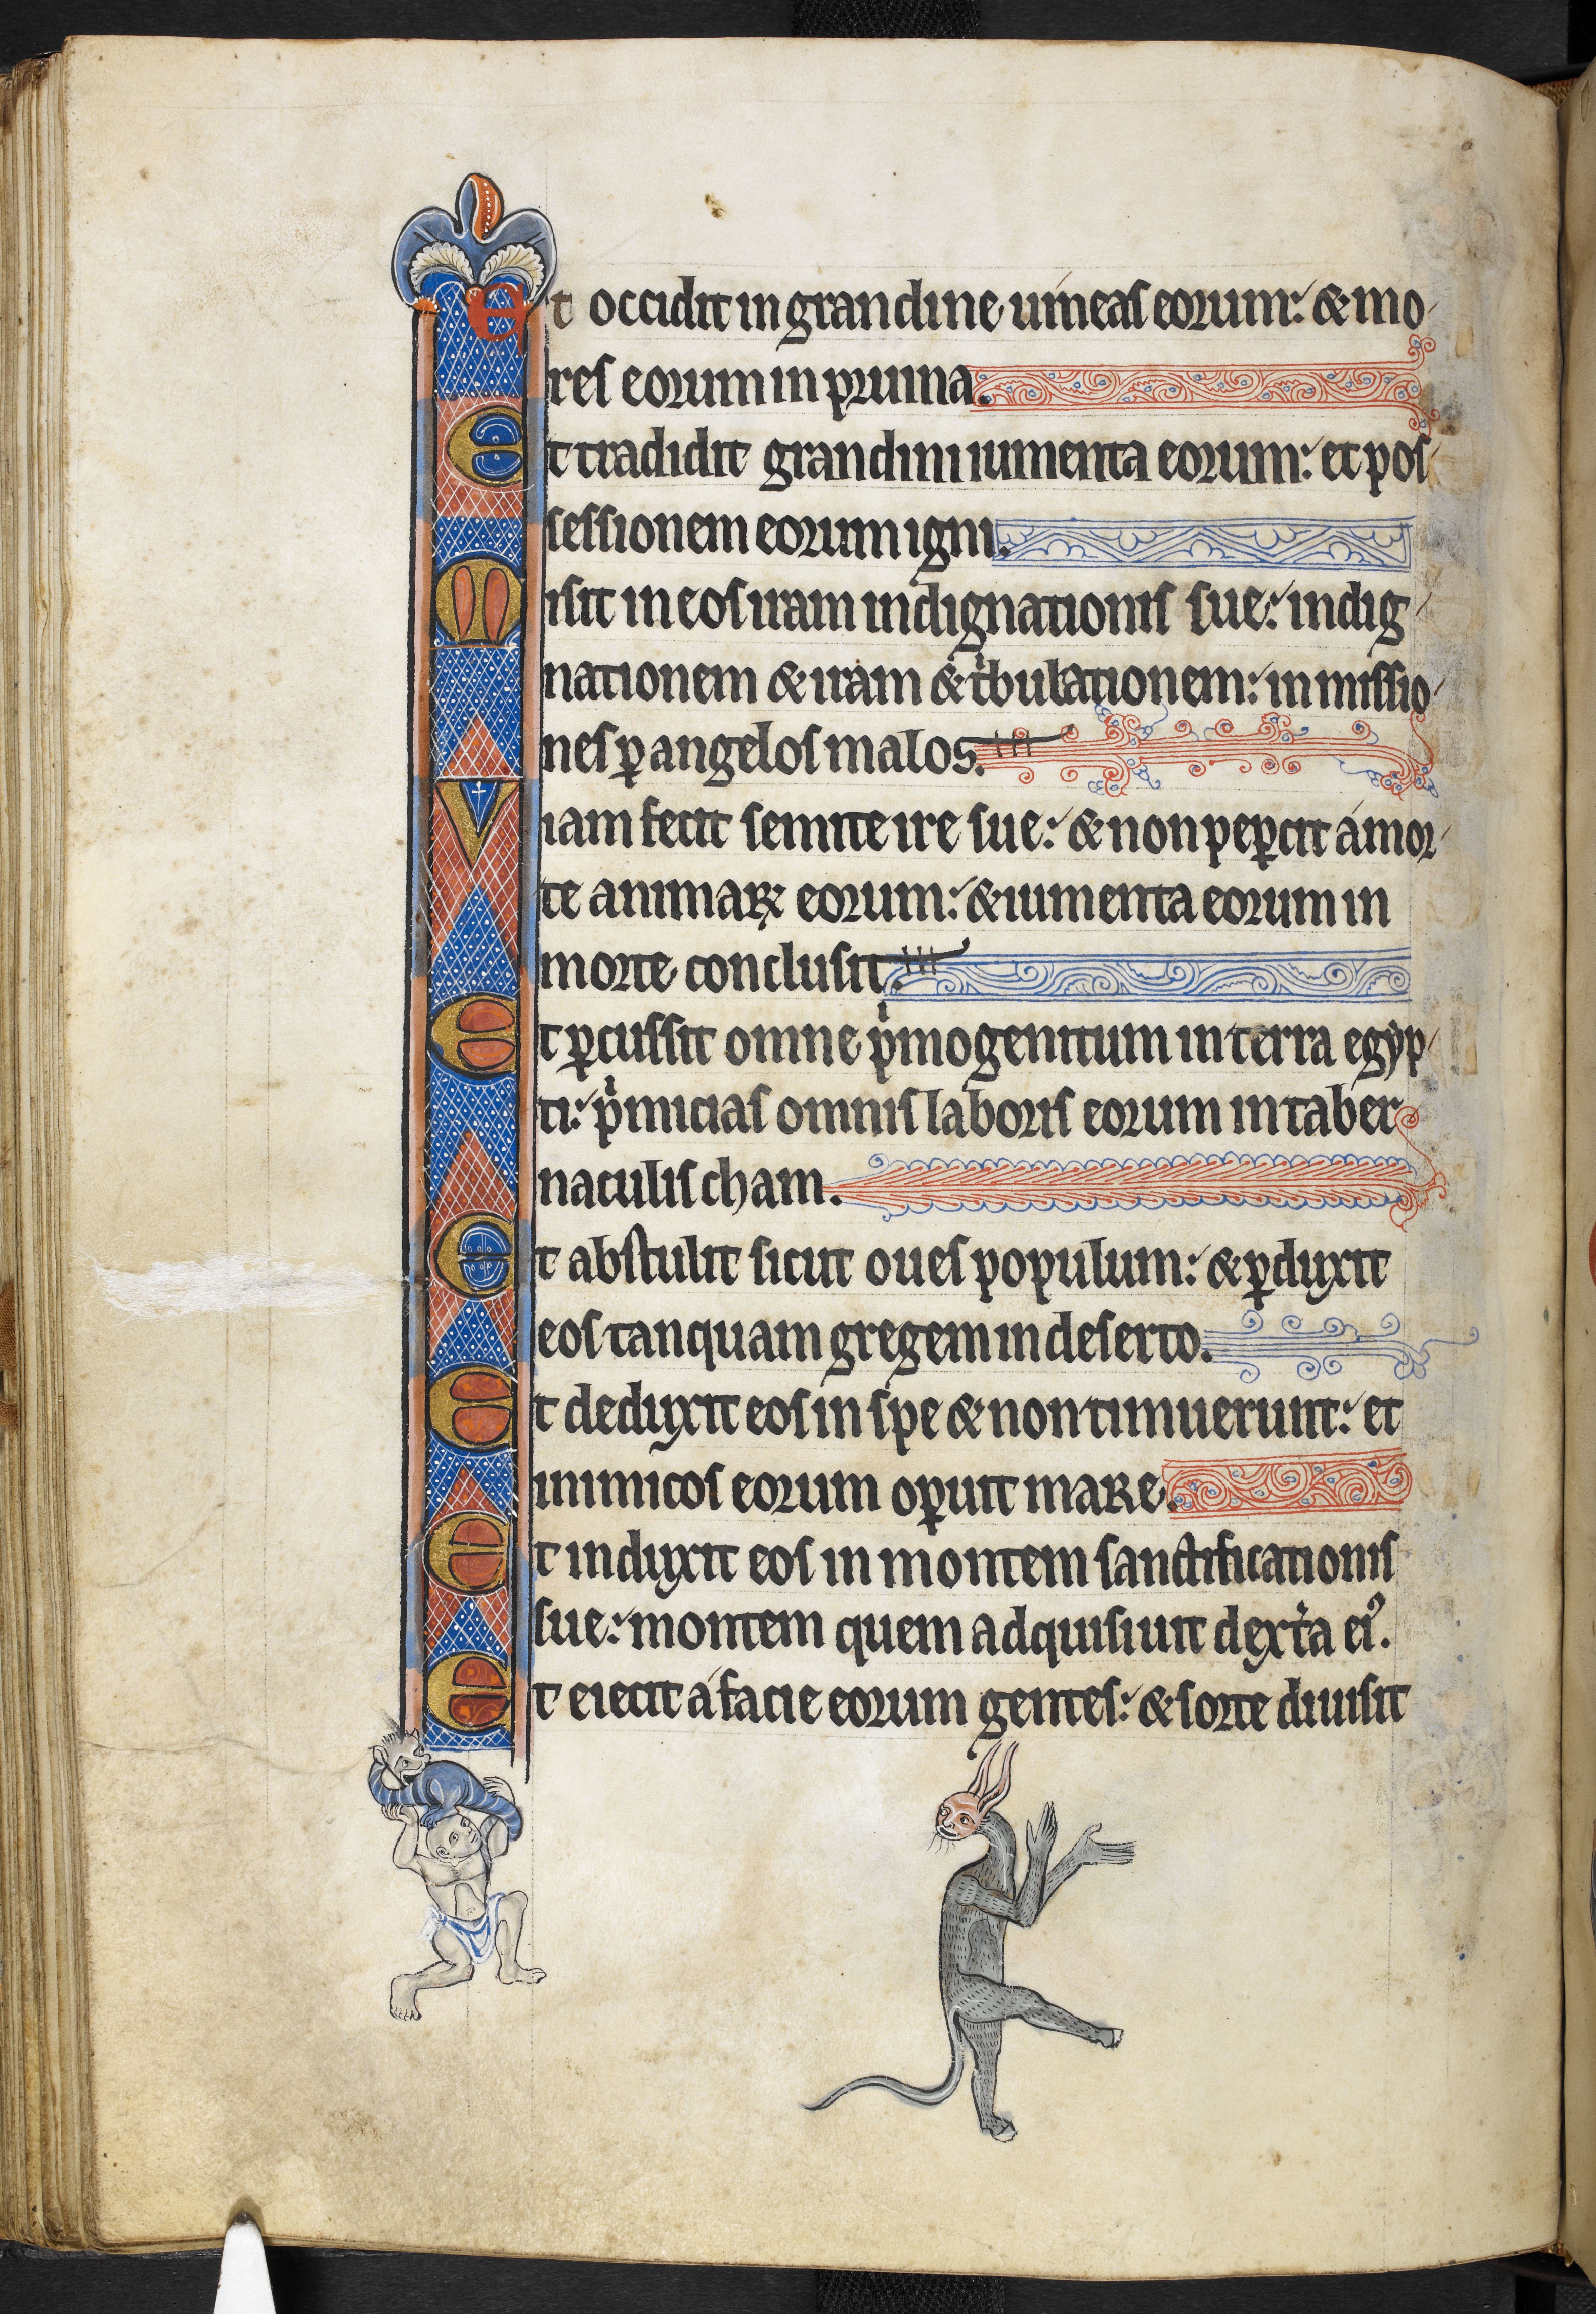 Et occidit in grandine uineas eorum: & mo
res eorum in pruina.
Et tradidit grandini iumenta eorum: et pos
sessionem eorum igni.
Misit in eos iram indignationis sue: indig
nationem & iram & tͥbulationem: inmissio
nes ꝑ angelos malos.
Viam fecit semite ire sue: & non peꝑcit a mor
te animaꝝ eorum: & iumenta eorum in
morte conclusit.
Et ꝑcussit omne pͥmogenitum in terra egyp
ti: pͥmicias omnis laboris eorum in taber
naculis cham.
Et abstulit sicut oues populum: & ꝑduxit
eos tanquam gregem in deserto.
Et deduxit eos in spe & non timuerunt: et
inimicos eorum oꝑuit mare.
Et induxit eos in montem sanctificationis
sue: montem quem adquisiuit dextͣa eiꝰ.
Et eiecit a facie eorum gentes: & sorte diuisit